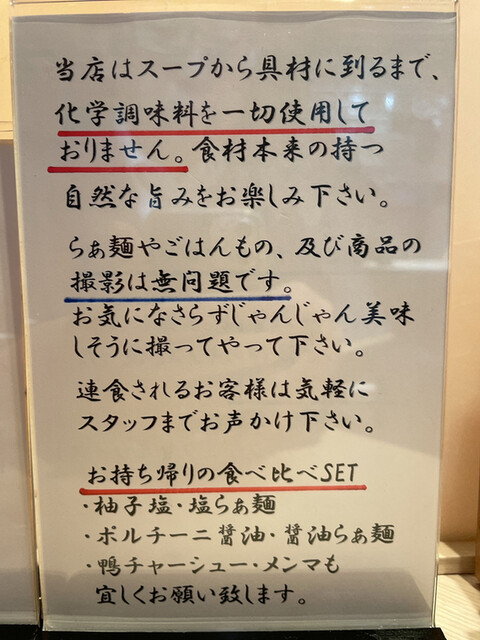 当店はスープから具材に到るまで、
化学調味料を一切使用して
おりません。食材本来の持つ
自然な旨みをお楽しみ下さい。
らぁ麺やごはんもの、及び商品の
撮影は無問題です。
お気になさらずじゃんじゃん美味
しそうに撮ってやって下さい。
連食されるお客様は気軽に
スタッフまでお声かけ下さい。
お持ち帰りの食べ比べSET
・柚子塩・塩らぁ麺
・ポルチーニ醤油・醤油らぁ麺
・鴨チャーシュー・メンマも
宜しくお願い致します。